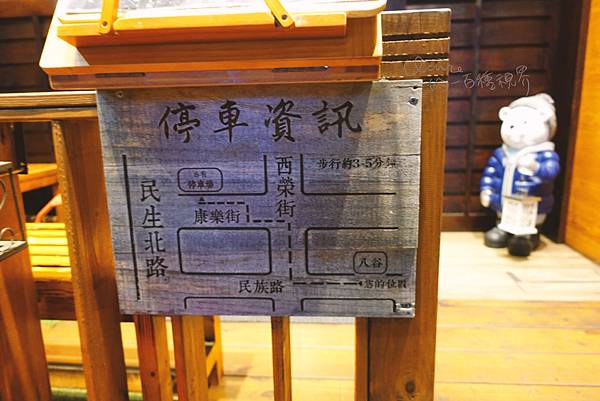 停車資訊
步行約3-5分鐘
西榮街
停車場
康樂街
民生北路
八谷
民族路
您的位置
百種視界